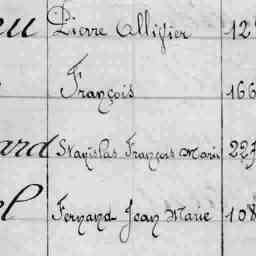 eu Pierre Ollifier 129
François 166
ard Stanislas François Marie 223
el Fernand Jean Marie 108